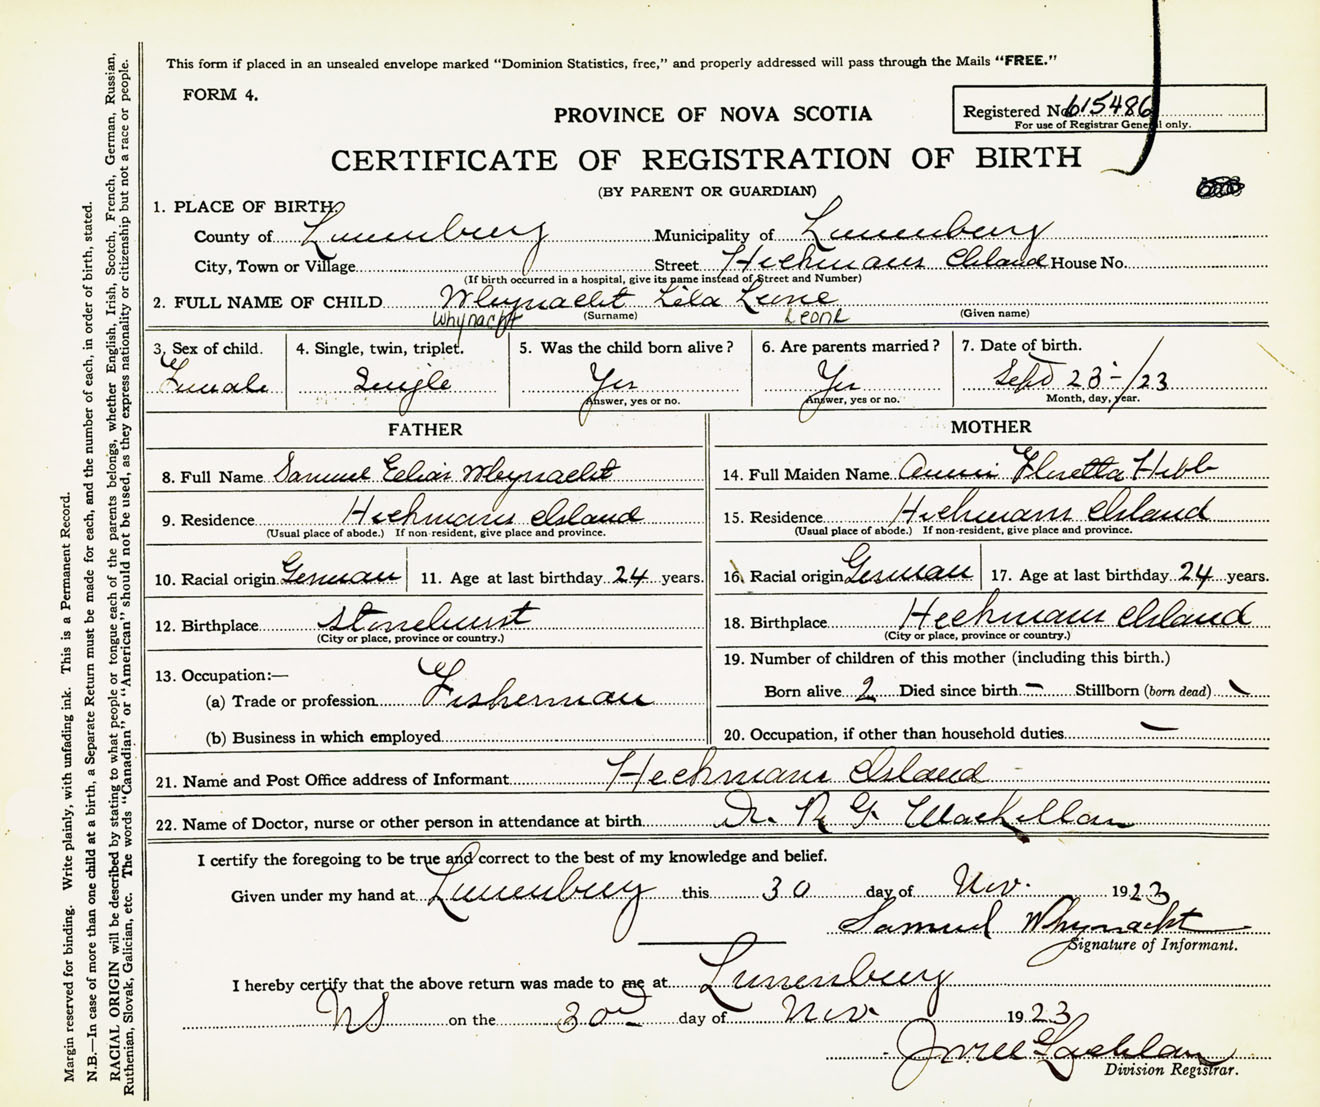 This form if placed in an unsealed envelope marked "Dominion Statistics, free," and properly addressed will pass through the Mails "FREE."
FORM 4.
PROVINCE OF NOVA SCOTIA
Registered No. 615486
For use of Registrar General only.
CERTIFICATE OF REGISTRATION OF BIRTH
(BY PARENT OR GUARDIAN)
1. PLACE OF BIRTH.
County of Lunenburg Municipality of Lunenburg
City, Town or Village Street Heckmans Island House No.
(If birth occurred in a hospital, give its name instead of Street and Number)
2. FULL NAME OF CHILD Whynacht Lila Leone
Whynacht (Surname) Leone (Given name)
3. Sex of child. 4. Single, twin, triplet. 5. Was the child born alive? 6. Are parents married? 7. Date of birth.
Female Single Yes Yes Sept 23-/23
Answer, yes or no. Answer, yes or no. Month, day, year.
FATHER MOTHER
8. Full Name Samuel Elias Whynacht 14. Full Maiden Name Annie Floretta Hebb
9. Residence Heckmans Island 15. Residence Heckmans Island
(Usual place of abode.) If non-resident, give place and province. (Usual place of abode.) If non-resident, give place and province.
10. Racial origin German 11. Age at last birthday 24 years. 16. Racial origin German 17. Age at last birthday 24 years.
12. Birthplace Stonehurst 18. Birthplace Heckmans Island
(City or place, province or country.) (City or place, province or country.)
13. Occupation:— 19. Number of children of this mother (including this birth.)
(a) Trade or profession Fisherman Born alive 2 Died since birth – Stillborn (born dead) –
(b) Business in which employed 20. Occupation, if other than household duties –
21. Name and Post Office address of Informant Heckmans Island
22. Name of Doctor, nurse or other person in attendance at birth Dr. R G MacKellan
I certify the foregoing to be true and correct to the best of my knowledge and belief.
Given under my hand at Lunenburg this 30 day of Nov. 1923
Samuel Whynacht
Signature of Informant.
I hereby certify that the above return was made to me at Lunenburg
NS on the 30th day of Nov. 1923
Lachlan
Division Registrar.
Margin reserved for binding. Write plainly, with unfading ink. This is a Permanent Record.
N.B.—In case of more than one child at a birth, a Separate Return must be made for each, and the number of each, in order of birth, stated.
RACIAL ORIGIN will be described by stating to what people or tongue each of the parents belongs, whether English, Irish, Scotch, French, German, Russian,
Ruthenian, Slovak, Galician, etc. The words "Canadian" or "American" should not be used, as they express nationality or citizenship but not a race or people.